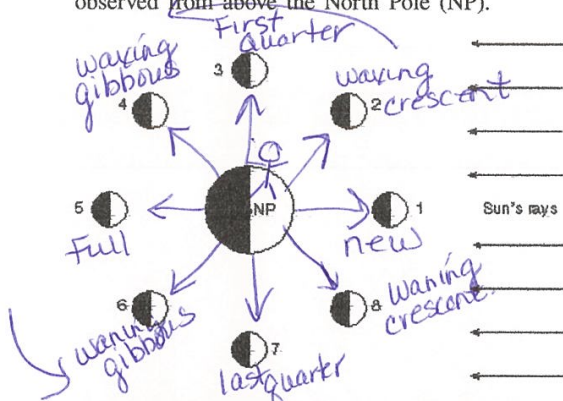 observed from above the North Pole (NP).
First
Quarter
3
waxing
gibbous
4
waxing
2
crescent
5
NP
1
Sun's rays
Full
new
6
waning
gibbous
8
waning
crescent
7
last quarter